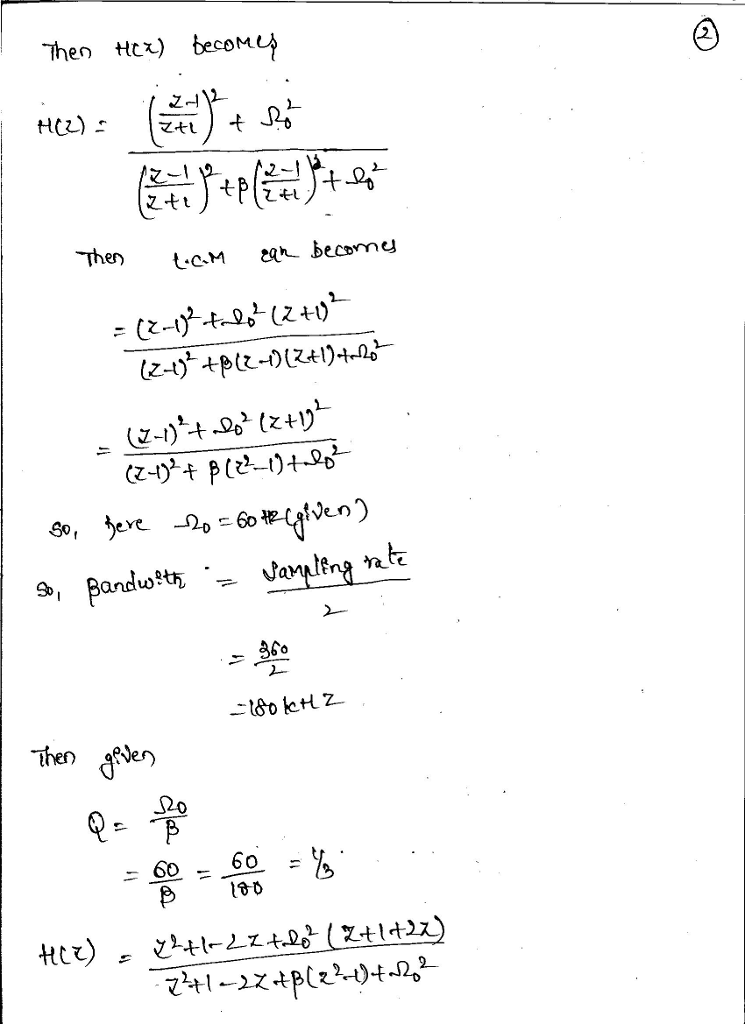 ②
Then H(z) becomes
H(z) = ((z-1)/(z+1))² + Ω₀²
((z-1)/(z+1))² + β((z-1)/(z+1)) + Ω₀²
Then L.C.M eqn becomes
= (z-1)² + Ω₀² (z+1)²
(z-1)² + β(z-1)(z+1) + Ω₀²
= (z-1)² + Ω₀² (z+1)²
(z-1)² + β(z²-1) + Ω₀²
so, here Ω₀ = 60 Hz (given)
so, Bandwith = Sampling rate
2
= 360
2
= 180 kHZ
Then given
Q = Ω₀
β
= 60 = 60 = 1/3
β 180
H(z) = z²+1-2z+Ω₀² (z+1+2z)
z²+1-2z+β(z²-1)+Ω₀²